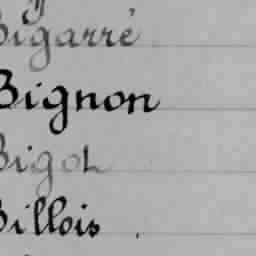 Bigarré
Bignon
Bigot
Billois